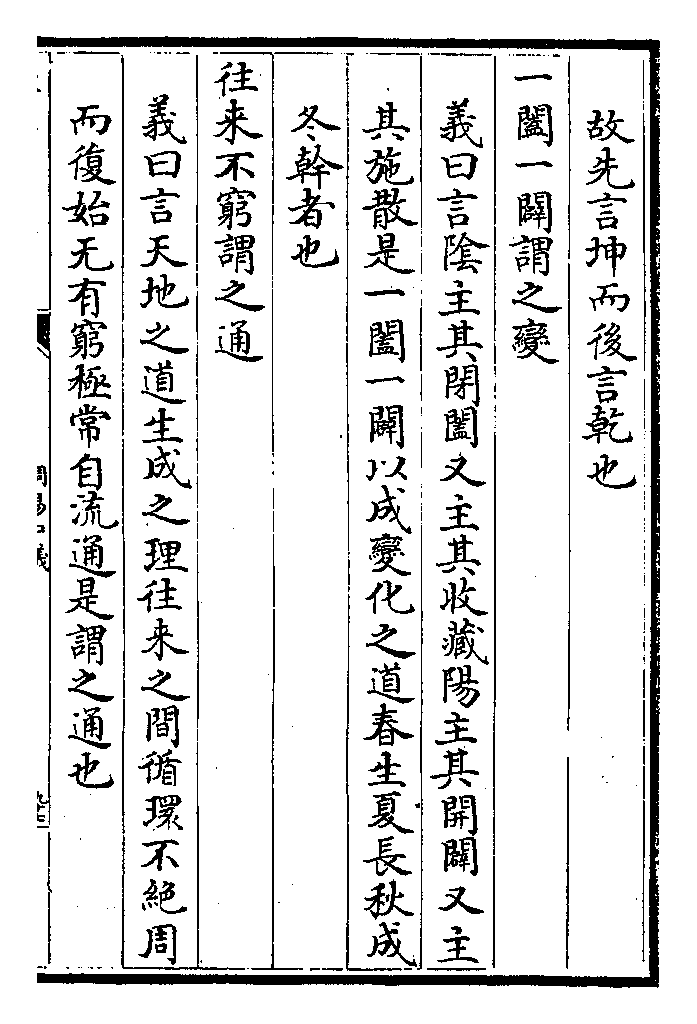 故先言坤而後言乾也
一闔一闢謂之變
義曰言陰主其閉闔又主其收藏陽主其開闢又主
其施散是一闔一闢以成變化之道春生夏長秋成
冬幹者也
往來不窮謂之通
義曰言天地之道生成之理往来之間循環不絶周
而復始无有窮極常自流通是謂之通也